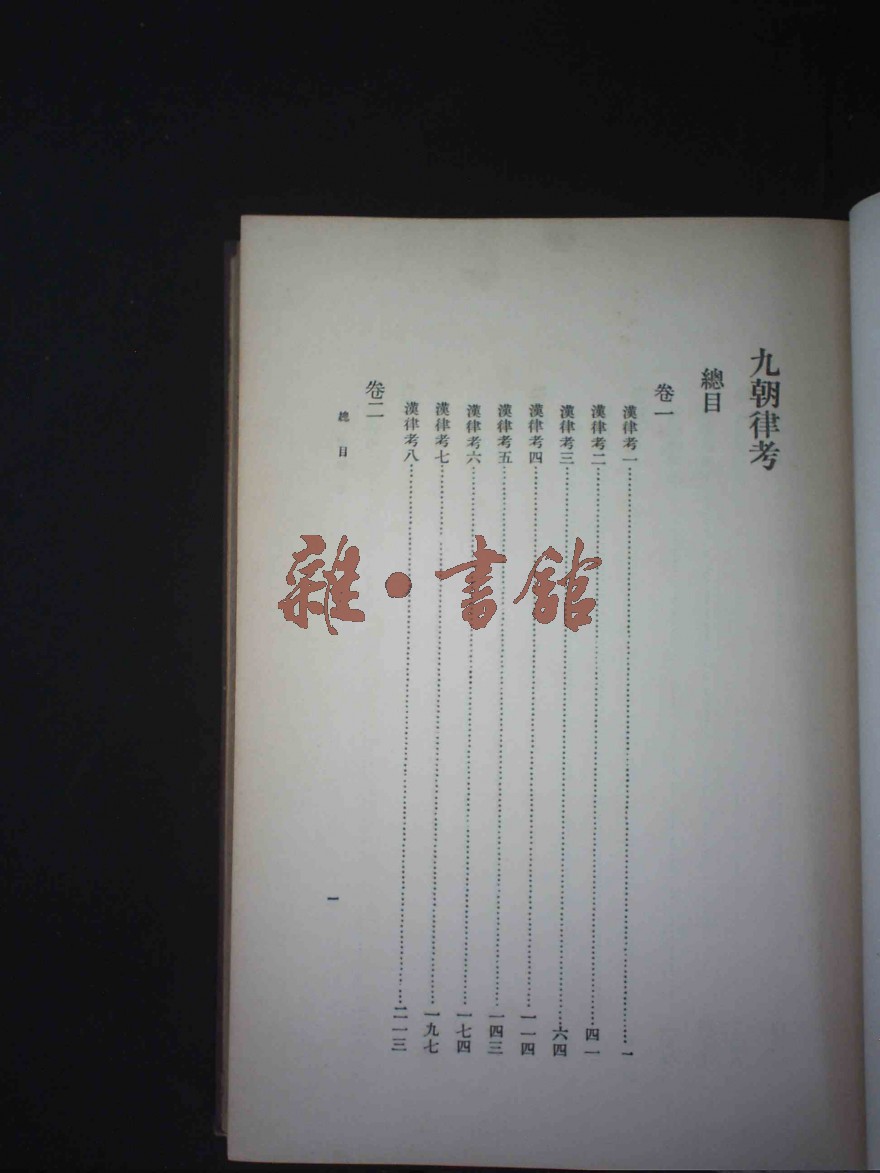 九朝律考
總目
卷一
漢律考一……一
漢律考二……四一
漢律考三……六四
漢律考四……一一四
漢律考五……一四三
漢律考六……一七四
漢律考七……一九七
漢律考八……二一三
卷二
總目
一
雜·書館